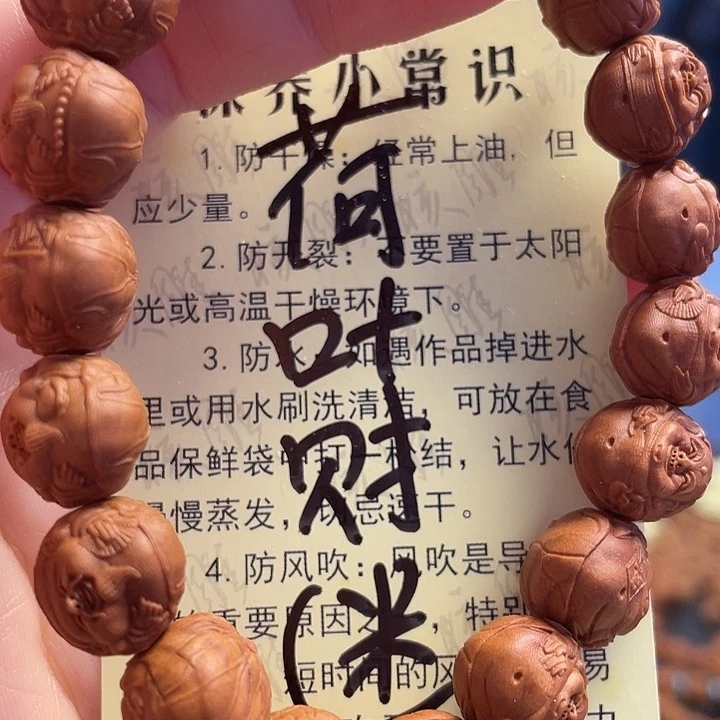 保养小常识
1.防干燥：经常上油，但
应少量。
2.防开裂：不要置于太阳
光或高温干燥环境下。
3.防水：如遇作品掉进水
里或用水刷洗清洁，可放在食
品保鲜袋中打一松结，让水份
慢慢蒸发，切忌速干。
4.防风吹：风吹是导
重要原因之，特别
短时间的风 易
荷叶财迷